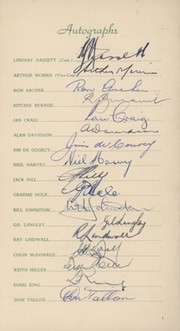 Autographs
LINDSAY HASSETT
ARTHUR MORRIS
RON ARCHER Ron Archer
RICHIE BENAUD R. Benaud
IAN CRAIG Ian Craig
ALAN DAVIDSON A Davidson
JIM DE COURCY Jim de Courcy
NEIL HARVEY Neil Harvey
JACK HILL J Hill
GRAEME HOLE G Hole
BILL JOHNSTON
GIL LANGLEY Gil Langley
RAY LINDWALL R Lindwall
COLIN MCDONALD
KEITH MILLER
DOUG RING D. Ring
DON TALLON Don Tallon